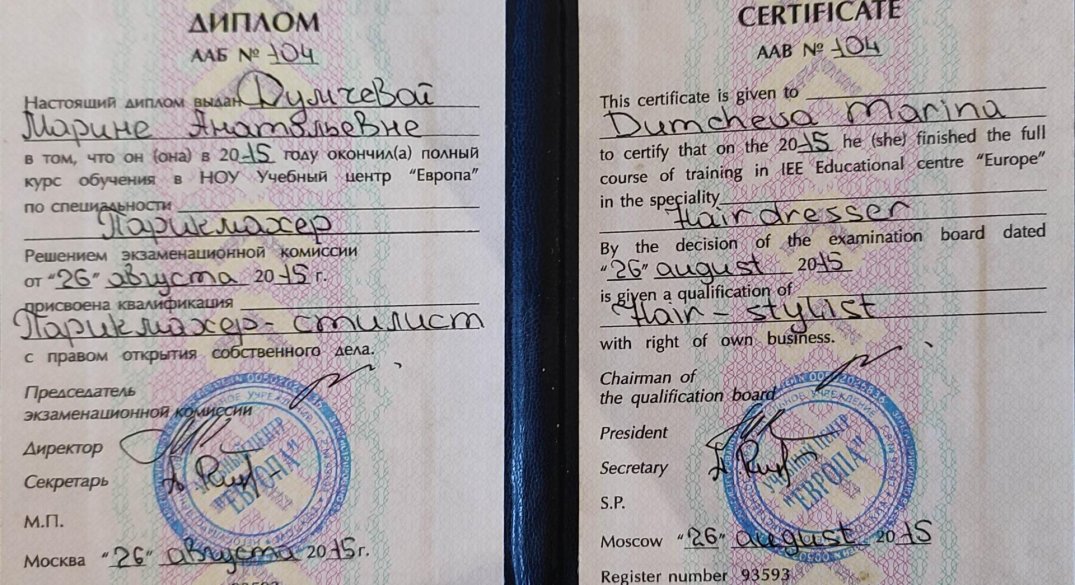 ДИПЛОМ
ААБ № 104
Настоящий диплом выдан Думчевой
Марине Анатольевне
в том, что он (она) в 2015 году окончил(а) полный
курс обучения в НОУ Учебный центр "Европа"
по специальности
Парикмахер
Решением экзаменационной комиссии
от "26" августа 2015 г.
присвоена квалификация
Парикмахер-стилист
с правом открытия собственного дела.
Председатель
экзаменационной комиссии
Директор
Секретарь
М.П.
Москва "26" августа 2015 г.
93593
УЧЕБНЫЙ ЦЕНТР
"ЕВРОПА"
CERTIFICATE
AAB № 104
This certificate is given to
Dumcheva Marina
to certify that on the 2015 he (she) finished the full
course of training in IEE Educational centre "Europe"
in the speciality
Hairdresser
By the decision of the examination board dated
"26" august 2015
is given a qualification of
Hair-stylist
with right of own business.
Chairman of
the qualification board
President
Secretary
S.P.
Moscow "26" august 2015
Register number 93593
УЧЕБНЫЙ ЦЕНТР
"ЕВРОПА"